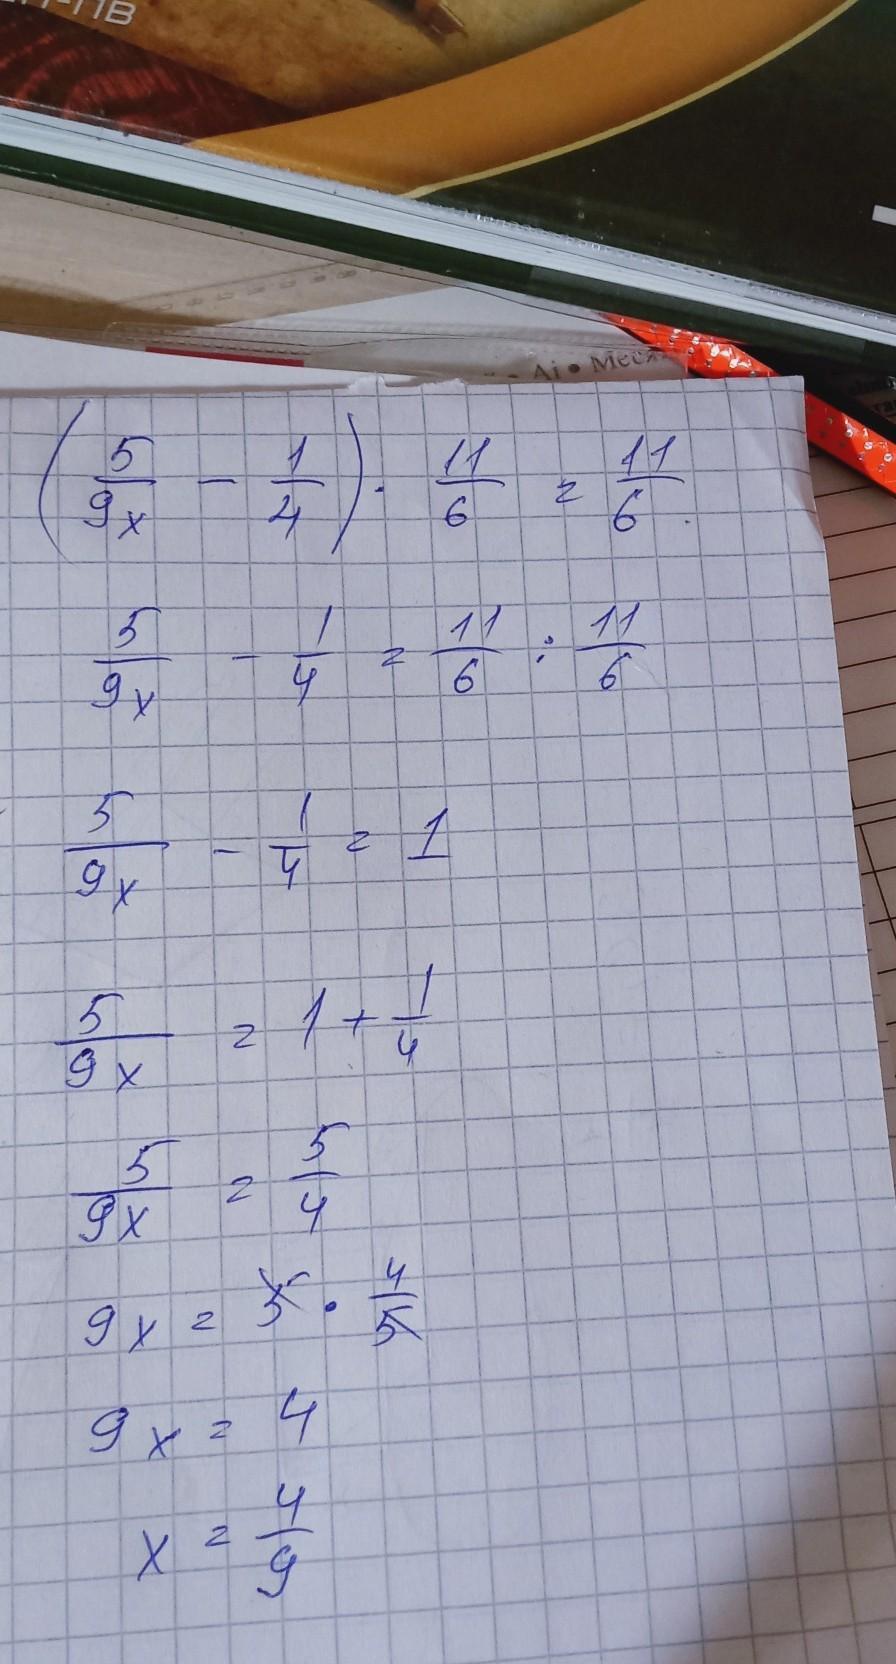 Ai • Меся
(5/9x - 1/4) · 11/6 = 11/6.
5/9x - 1/4 = 11/6 : 11/6
5/9x - 1/4 = 1
5/9x = 1 + 1/4
5/9x = 5/4
9x = 5 · 4/5
9x = 4
x = 4/9